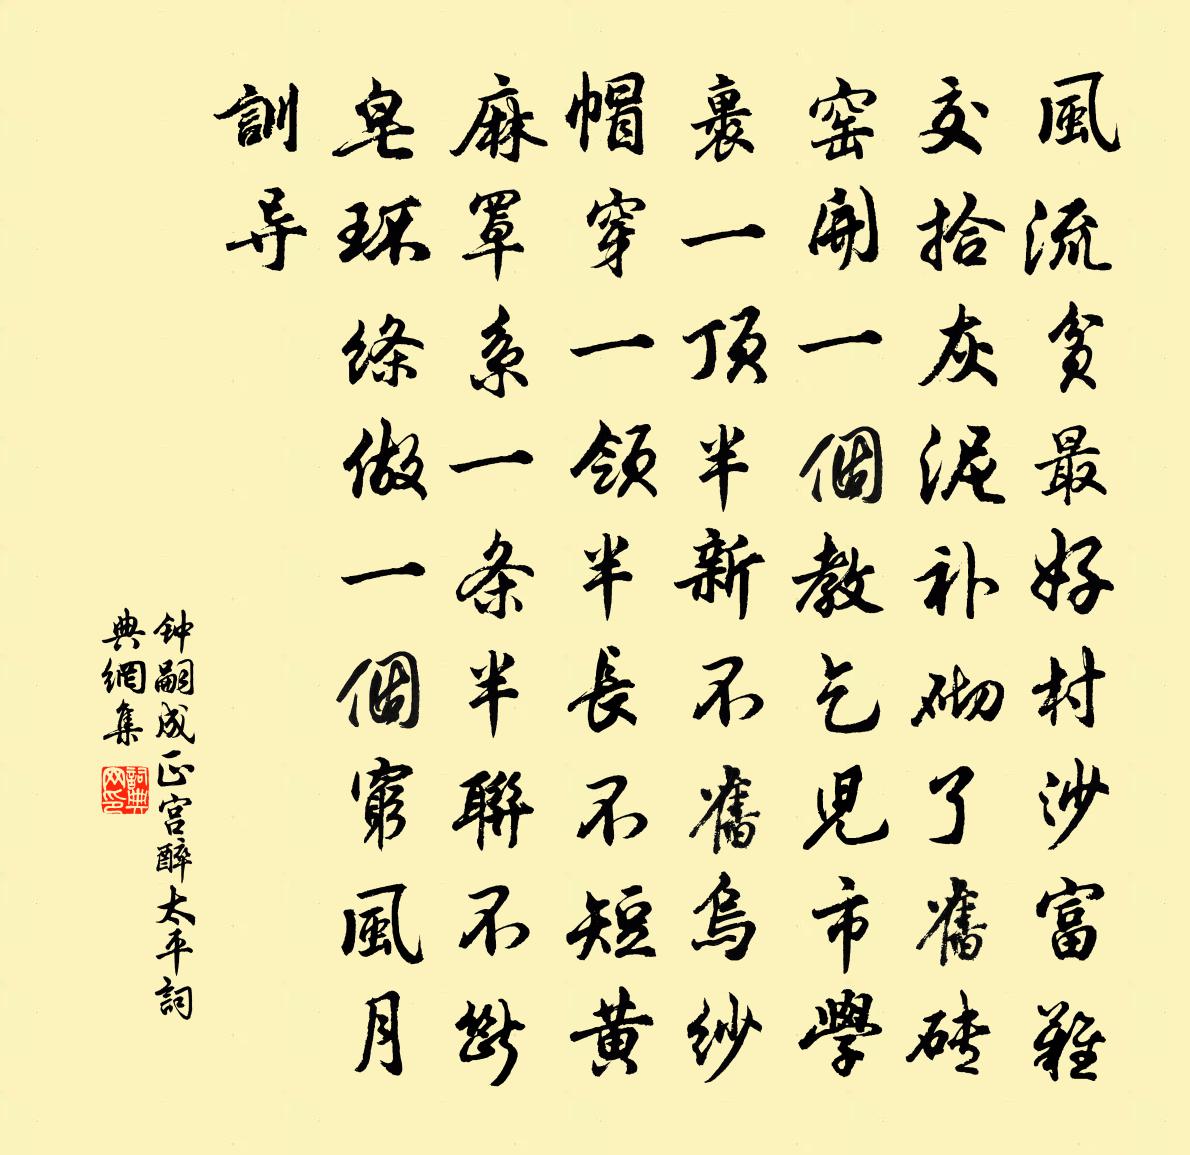 風流貧最好村沙富難
交拾灰泥补砌了舊砖
窑開一個教乞児市學
裹一頂半新不舊烏紗
帽穿一領半長不短黄
麻罩系一条半聯不斷
皂环絛做一個窮風月
訓导
钟嗣成正宫醉太平詞
典網集
詞典
网印